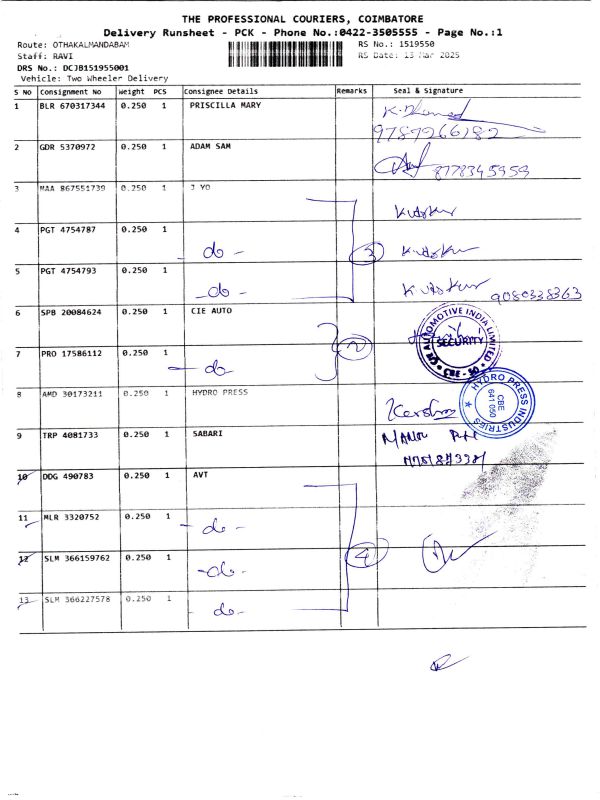 THE PROFESSIONAL COURIERS, COIMBATORE
Delivery Runsheet - PCK - Phone No.:0422-3505555 - Page No.:1
Route: OTHAKALMANDABAM
RS No.: 1519550
Staff: RAVI
RS Date: 13 Mar 2025
DRS No.: DCJB151955001
Vehicle: Two Wheeler Delivery
S NO Consignment No Weight PCS Consignee Details Remarks Seal & Signature
1 BLR 670317344 0.250 1 PRISCILLA MARY
9789266182
2 GDR 5370972 0.250 1 ADAM SAM
8778345959
3 MAA 867551739 0.250 1 J YO
4 PGT 4754787 0.250 1 - do - 3
5 PGT 4754793 0.250 1 - do -
9080338363
6 SPB 20084624 0.250 1 CIE AUTO
CIE AUTOMOTIVE INDIA LIMITED
SECURITY
CBE - 50
7 PRO 17586112 0.250 1 - do - 2
8 AMD 30173211 0.250 1 HYDRO PRESS
HYDRO PRESS INDUSTRIES
CBE
641 050
9 TRP 4081733 0.250 1 SABARI
10 DDG 490783 0.250 1 AVT
11 MLR 3320752 0.250 1 - do -
12 SLM 366159762 0.250 1 - do - 4
13 SLM 366227578 0.250 1 - do -